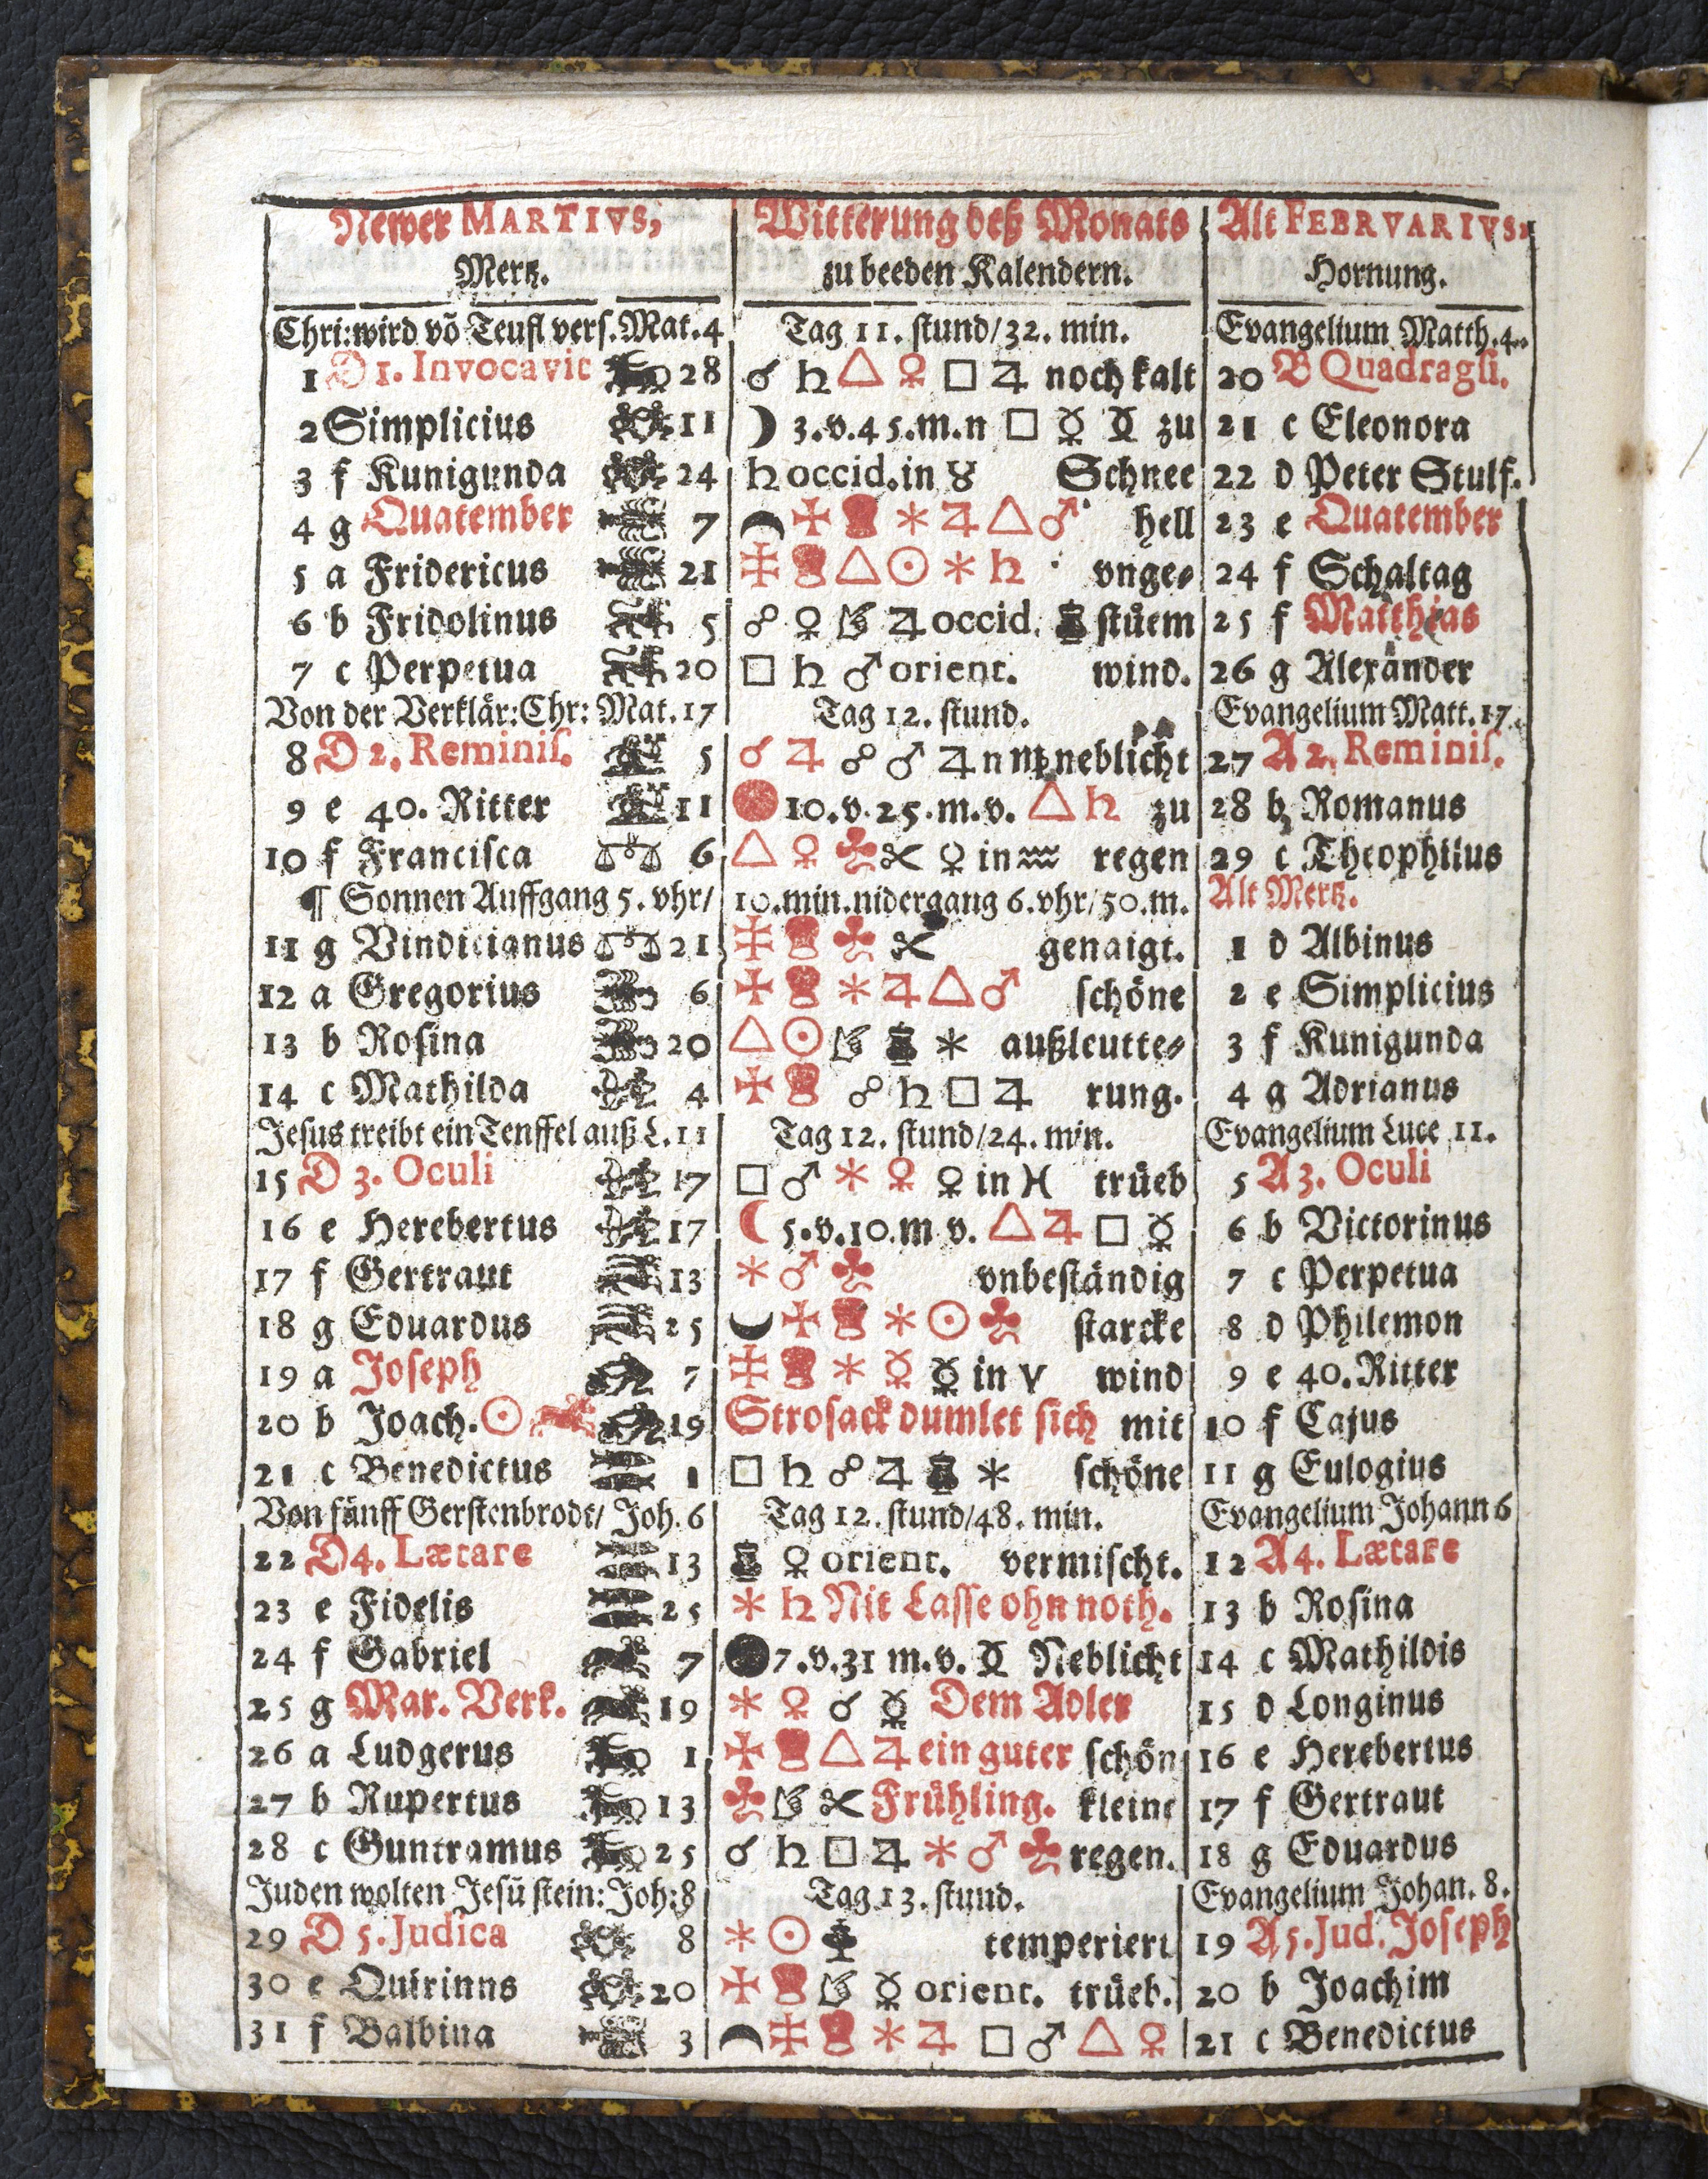 Newer MARTIVS, Witterung deß Monats Alt FEBRVARIVS,
Mertz. zu beeden Kalendern. Hornung.
Chri: wird võ Teufl vers. Mat. 4 Tag 11. stund/32. min. Evangelium Matth. 4.
1 D 1. Invocavit 28 ☌ ♄ △ ♀ □ ♃ noch kalt 20 B Quadragsi.
2 Simplicius 11 ☽ 3. v. 45. m. n □ ☿ zu 21 c Eleonora
3 f Kunigunda 24 ♄ occid. in ♉ Schnee 22 d Peter Stulf.
4 g Quatember 7 ✠ * ♃ △ ♂ hell 23 e Quatember
5 a Fridericus 21 △ ☉ * ♄ vnge- 24 f Schaltag
6 b Fridolinus 5 ☍ ♀ ♃ occid. stüem 25 f Matthias
7 c Perpetua 20 □ ♄ ♂ orient. wind. 26 g Alexander
Von der Verklär: Chr: Mat. 17 Tag 12. stund. Evangelium Matt. 17.
8 D 2. Reminis. 5 ☌ ♃ ☍ ♂ ♃ n ♍ neblicht 27 A 2. Reminis.
9 e 40. Ritter 11 10. v. 25. m. v. △ ♄ zu 28 b Romanus
10 f Francisca 6 △ ♀ ♣ ✂ ♀ in ♒ regen 29 c Theophilus
¶ Sonnen Auffgang 5. vhr/ 10. min. nidergang 6. vhr/50. m. Alt Mertz.
11 g Vindicianus 21 ♣ ✂ genaigt. 1 d Albinus
12 a Gregorius 6 ✠ * ♃ △ ♂ schöne 2 e Simplicius
13 b Rosina 20 △ ☉ * außleutte- 3 f Kunigunda
14 c Mathilda 4 ✠ ☍ ♄ □ ♃ rung. 4 g Adrianus
Jesus treibt ein Tenffel auß L. 11 Tag 12. stund/24. min. Evangelium Luce 11.
15 D 3. Oculi 17 □ ♂ * ♀ ♀ in ♓ trüeb 5 A 3. Oculi
16 e Herebertus 17 ☾ 5. v. 10. m v. △ ♃ □ ☿ 6 b Victorinus
17 f Gertraut 13 * ♂ ♣ vnbeständig 7 c Perpetua
18 g Eduardus 25 ✠ * ☉ ♣ starcke 8 d Philemon
19 a Joseph 7 * ☿ ☿ in ♈ wind 9 e 40. Ritter
20 b Joach. ☉ 19 Strosack dumlet sich mit 10 f Cajus
21 c Benedictus 1 □ ♄ ☍ ♃ * schöne 11 g Eulogius
Von fünff Gerstenbrodt/ Joh. 6 Tag 12. stund/48. min. Evangelium Johann 6
22 D 4. Lætare 13 ♀ orient. vermischt. 12 A 4. Lætare
23 e Fidelis 25 * ♄ Nit Lasse ohn noth. 13 b Rosina
24 f Gabriel 7 7. v. 31 m. v. Neblicht 14 c Mathildis
25 g Mar. Verk. 19 * ♀ ☌ ☿ Dem Adler 15 d Longinus
26 a Ludgerus 1 ✠ △ ♃ ein guter schön 16 e Herebertus
27 b Rupertus 13 ♣ ✂ Frühling. kleine 17 f Gertraut
28 c Guntramus 25 ☌ ♄ □ ♃ * ♂ ♣ regen. 18 g Eduardus
Juden wolten Jesü stein: Joh: 8 Tag 13. stund. Evangelium Johan. 8.
29 D 5. Judica 8 * ☉ temperiert 19 A 5. Jud. Joseph
30 e Quirinns 20 ✠ ☿ orient. trüeb. 20 b Joachim
31 f Balbina 3 * ♃ □ ♂ △ ♀ 21 c Benedictus